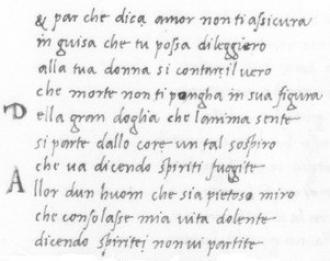 & par che dica amor non ti assicura
in guisa che tu possa di leggiero
alla tua donna si contare il vero
che morte non ti pongha in sua figura
Della gran doglia che lanima sente
si parte dallo core un tal sospiro
che va dicendo spiriti fuggite
Allor dun huom che sia pietoso miro
che consolasse mia vita dolente
dicendo spiritei non vi partite